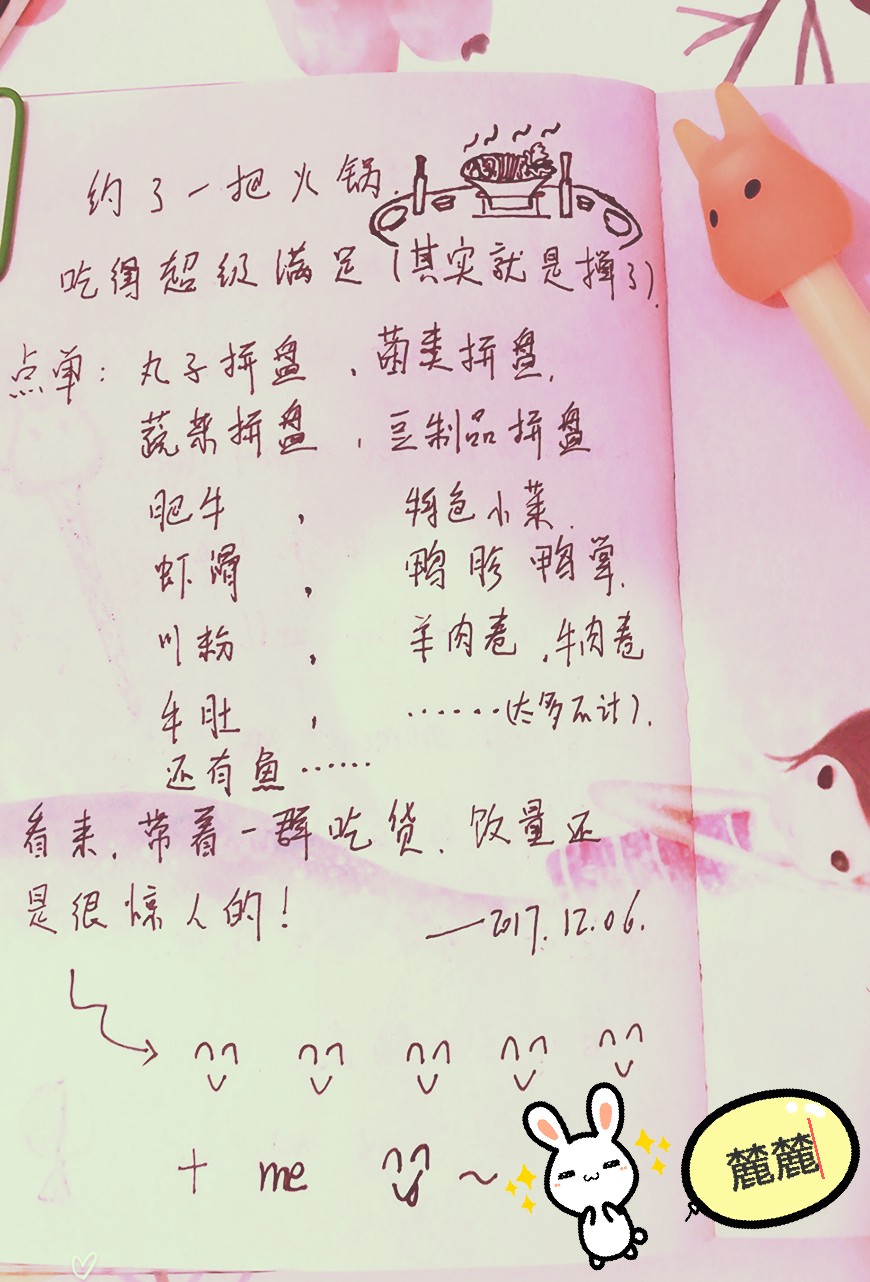 约了一把火锅.
吃得超级满足(其实就是撑了).
点单: 丸子拼盘、菌类拼盘,
蔬菜拼盘、豆制品拼盘
肥牛、特色小菜.
虾滑、鸭胗鸭掌.
川粉、羊肉卷、牛肉卷
牛肚、……(太多不计).
还有鱼……
看来,带着一群吃货,饭量还
是很惊人的!
—2017.12.06.
+ me ~
麓麓